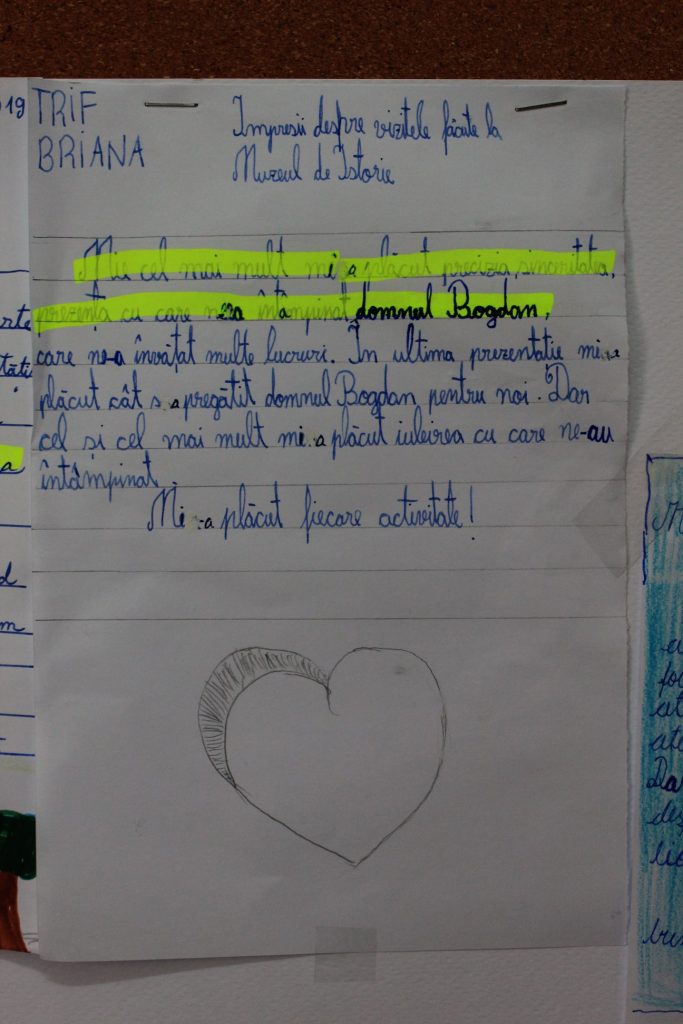 19
TRIF
BRIANA
Impresii despre vizitele făcute la
Muzeul de Istorie
Mie cel mai mult mi-a plăcut precizia, sinceritatea,
prezența cu care ne-a întâmpinat domnul Bogdan,
care ne-a învățat multe lucruri. În ultima prezentație mi-a
plăcut cât s-a pregătit domnul Bogdan pentru noi. Dar
cel și cel mai mult mi-a plăcut iuleirea cu care ne-au
întâmpinat.
Mi-a plăcut fiecare activitate!